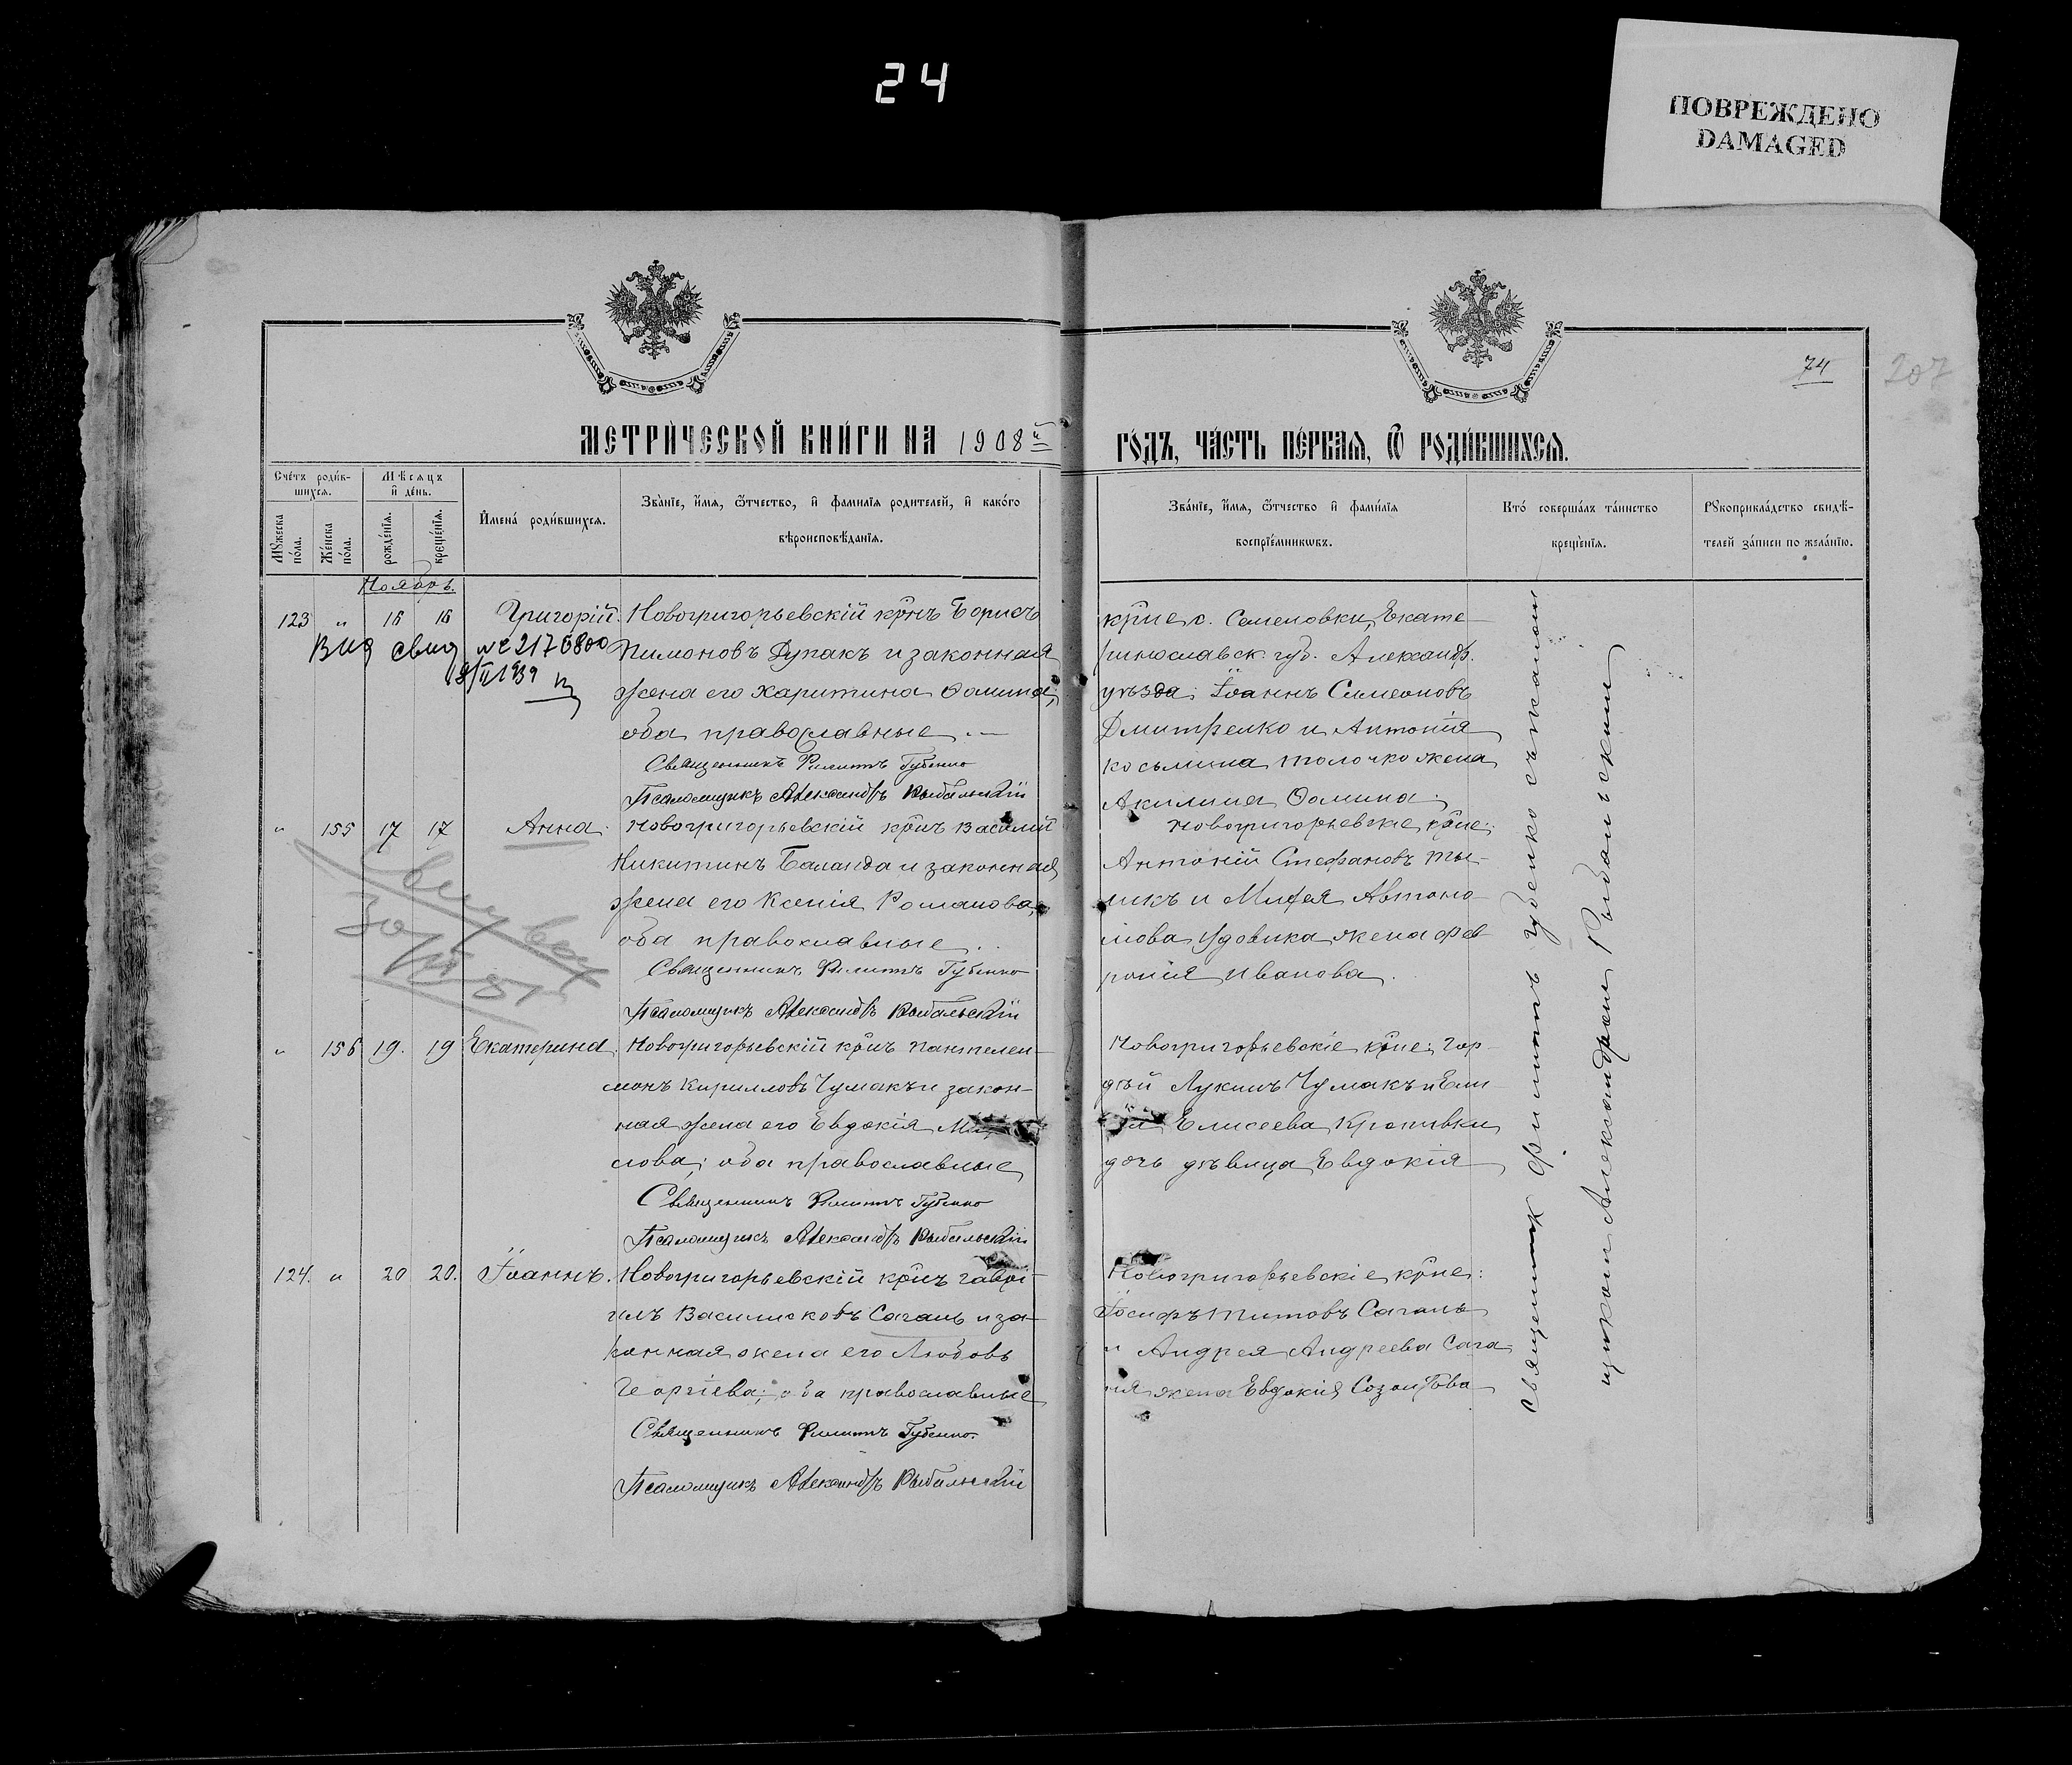 24
ПОВРЕЖДЕНО
DAMAGED
74
207
МЕТРИ́ЧЕСКОЙ КНИ́ГИ НА 1908й
ГО́ДЪ, ЧА́СТЬ ПЕ́РВАЯ, Ѿ РОДИ́ВШИХСЯ.
Сче́тъ роди́в-
шихся.
Мѣсяцъ
и҆ де́нь.
Мꙋ́жеска
по́ла.
Же́нска
по́ла.
рожде́нїя.
креще́нїя.
И҆мена́ роди́вшихся.
Зва́нїе, и҆́мя, ѻ҆́тчество, и҆ фами́лїя родителей, и҆ како́го
вѣроисповѣ́данїя.
Зва́нїе, и҆́мя, ѻ҆́тчество и҆ фами́лїя
воспрїе́мникѡвъ.
Кто́ соверша́лъ та́инство
креще́нїя.
Рꙋкоприкла́дство свидѣ́-
телей за́писи по жела́нїю.
Ноябрь.
123 " 16 16 Григорій. Новогригорьевскій кр̃нъ Борисъ
Вид свид №
Пимоновъ Дупакъ и законная
жена его Харитина Ѳомина;
оба православные.
Священникъ Филиппъ Губенко
Псаломщикъ Александръ Рыбальскій
кр̃не с. Семеновки, Екате-
ринославск. губ. Александр.
уѣзда: Іоаннъ Симеоновъ
Дмитренко и Антонія
Косьмина Толочко жена
Акилина Ѳомина.
" 155 17 17 Анна. Новогригорьевскій кр̃нъ Василій
Никитинъ Баланда и законная
жена его Ксенія Романова,
оба православные.
Священникъ Филиппъ Губенко
Псаломщикъ Александръ Рыбальскій
Новогригорьевскіе кр̃не:
Антоній Стефановъ
и Автоно-
мова Удовика жена Фев
ронія Иванова.
" 156 19. 19 Екатерина. Новогригорьевскій кр̃нъ Пантелеи-
монъ Кирилловъ Чумакъ и закон-
ная жена его Евдокія
оба православные
Священникъ Филиппъ Губенко
Псаломщикъ Александръ Рыбальскій
Новогригорьевскіе кр̃не: Гор-
дѣй Лукинъ Чумакъ и
Елисеева Кропивки
дочь дѣвица Евдокія
124. " 20 20. Іоаннъ. Новогригорьевскій кр̃нъ Гаврі-
илъ Василисковъ Сагань и за-
конная жена его Любовь
Георгіева; оба православные
Священникъ Филиппъ Губенко.
Псаломщикъ Александръ Рыбальскій
Новогригорьевскіе кр̃не:
Іосифъ Титовъ Сагань
и Андрея Андреева Сага
ня жена Евдокія Созонтова
Священник Филиппъ Губенко съ псалом
щиком Александром Рыбальским